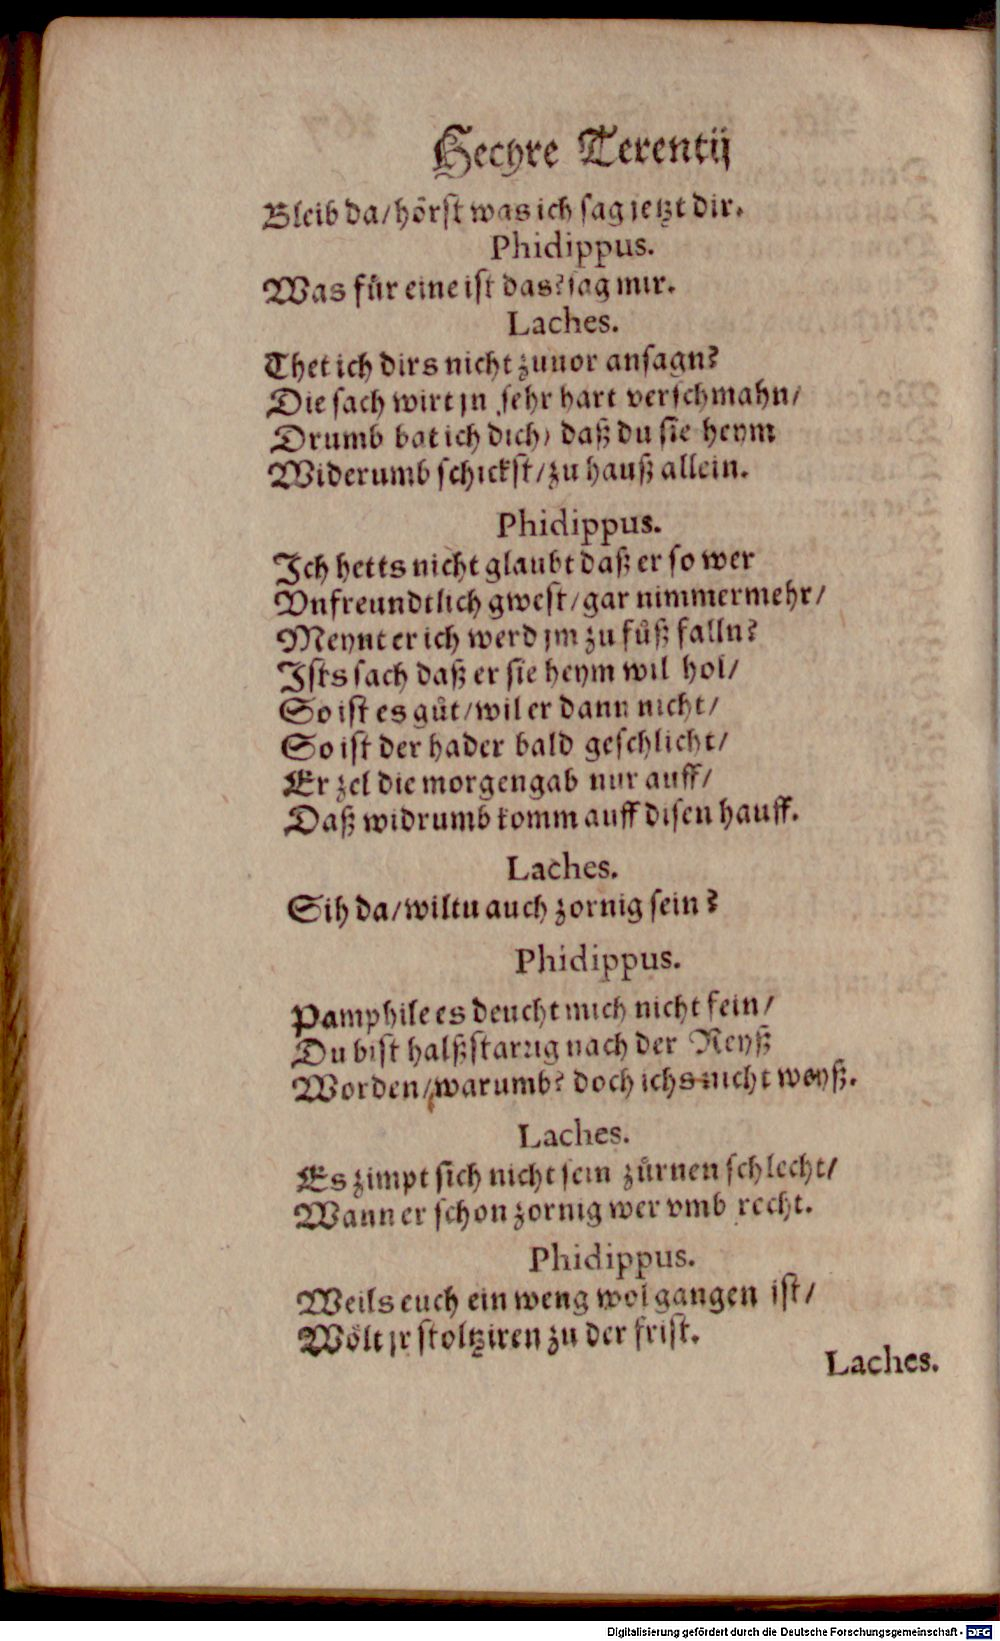 Hecyre Terentij
Bleib da/hörst was ich sag jetzt dir.
Phidippus.
Was für eine ist das? sag mir.
Laches.
Thet ich dirs nicht zuuor ansagn?
Die sach wirt jn sehr hart verschmahn/
Drumb bat ich dich/ daß du sie heym
Widerumb schickst/zu hauß allein.
Phidippus.
Ich hetts nicht glaubt daß er so wer
Vnfreundtlich gwest/gar nimmermehr/
Meynt er ich werd jm zu fůß falln?
Ists sach daß er sie heym wil hol/
So ist es gůt/wil er dann nicht/
So ist der hader bald geschlicht/
Er zel die morgengab nur auff/
Daß widrumb komm auff disen hauff.
Laches.
Sih da/wiltu auch zornig sein?
Phidippus.
Pamphile es deucht mich nicht fein/
Du bist halßstarrig nach der Reyß
Worden/warumb? doch ichs nicht weyß.
Laches.
Es zimpt sich nicht sein zürnen schlecht/
Wann er schon zornig wer vmb recht.
Phidippus.
Weils euch ein weng wol gangen ist/
Wölt jr stoltziren zu der frist.
Laches.
Digitalisierung gefördert durch die Deutsche Forschungsgemeinschaft - DFG